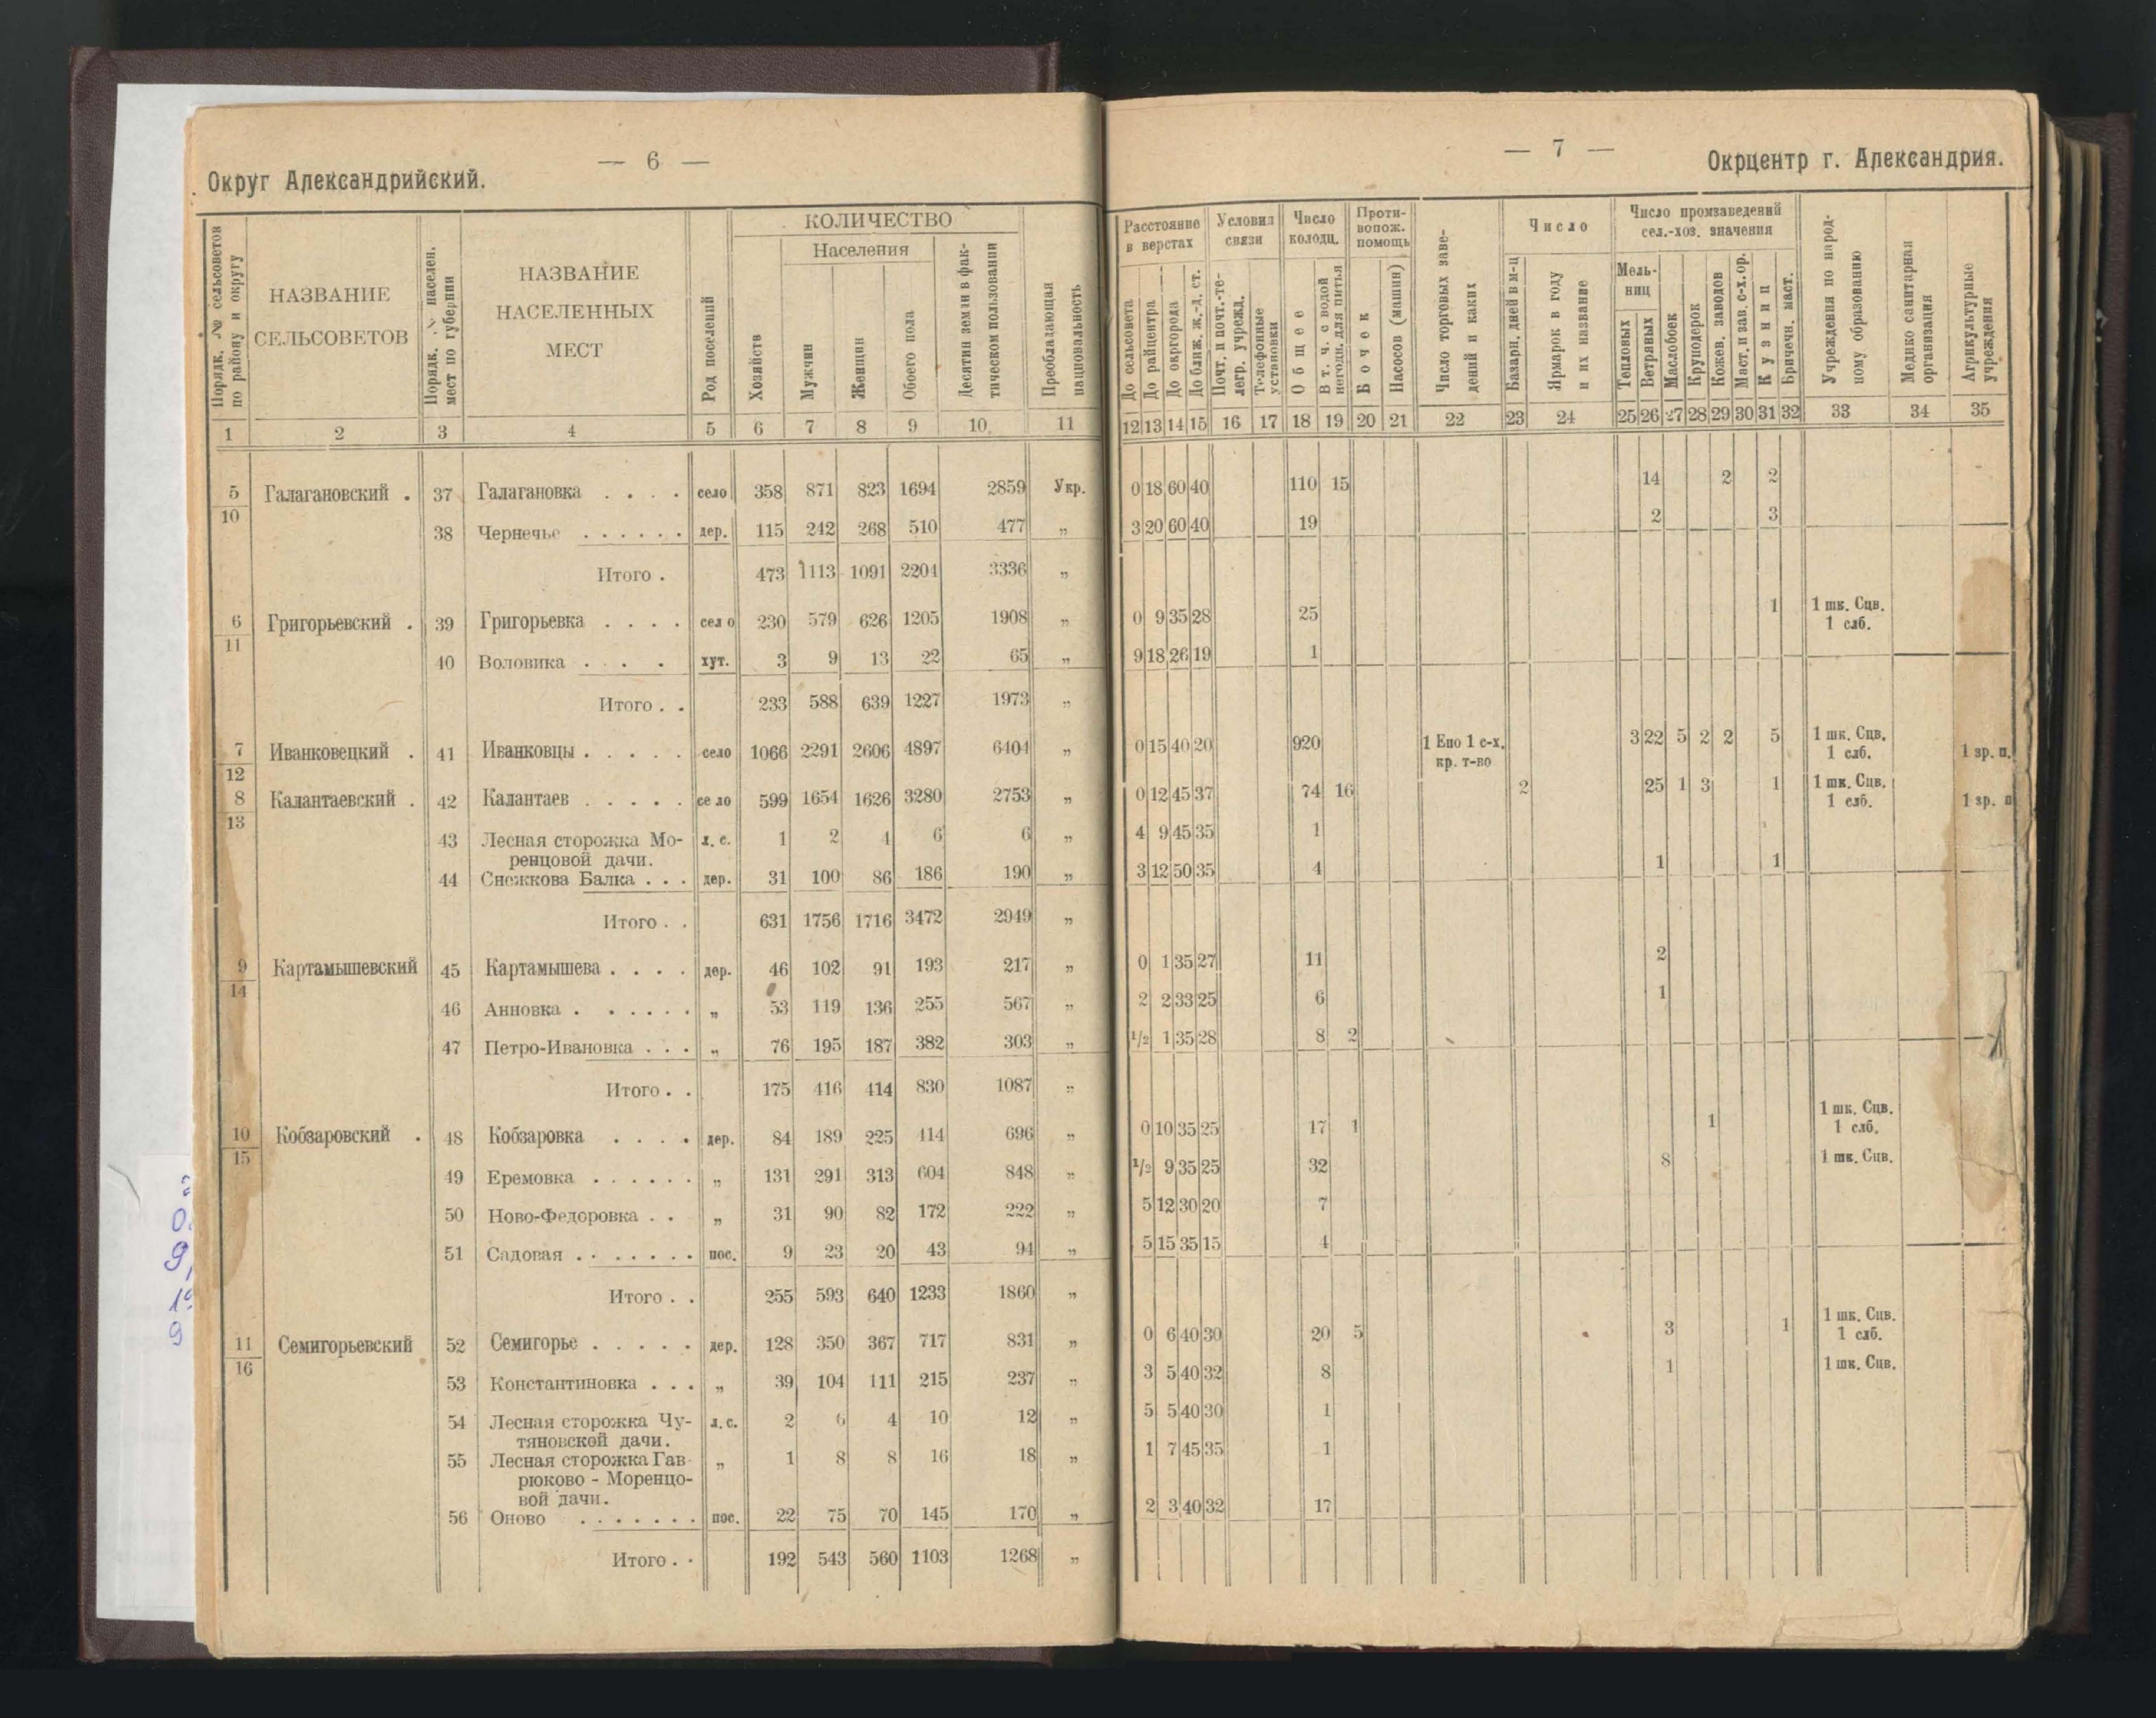 — 6 —
Округ Александрийский.
Порядк. № сельсоветов по району и округу
НАЗВАНИЕ СЕЛЬСОВЕТОВ
Порядк. № населен. мест по губернии
НАЗВАНИЕ НАСЕЛЕННЫХ МЕСТ
Род поселений
КОЛИЧЕСТВО
Населения
Хозяйств
Мужчин
Женщин
Обоего пола
Десятин земли в фактическом пользовании
Преобладающая национальность
1 2 3 4 5 6 7 8 9 10 11
5 Галагановский . 37 Галагановка . . . . село 358 871 823 1694 2859 Укр.
10
38 Чернечье . . . . . . дер. 115 242 268 510 477 „
Итого . 473 1113 1091 2204 3336 „
6 Григорьевский . 39 Григорьевка . . . . село 230 579 626 1205 1908 „
11
40 Воловика . . . . хут. 3 9 13 22 65 „
Итого . . 233 588 639 1227 1973 „
7 Иванковецкий . 41 Иванковцы . . . . . село 1066 2291 2606 4897 6404 „
12
8 Калантаевский . 42 Калантаев . . . . . село 599 1654 1626 3280 2753 „
13
43 Лесная сторожка Мо- л. с. 1 2 4 6 6 „
ренцовой дачи.
44 Снежкова Балка . . . дер. 31 100 86 186 190 „
Итого . . 631 1756 1716 3472 2949 „
9 Картамышевский 45 Картамышева . . . . дер. 46 102 91 193 217 „
14
46 Анновка . . . . . . „ 53 119 136 255 567 „
47 Петро-Ивановка . . . „ 76 195 187 382 303 „
Итого . . 175 416 414 830 1087 „
10 Кобзаровский . 48 Кобзаровка . . . . дер. 84 189 225 414 696 „
15
49 Еремовка . . . . . . „ 131 291 313 604 848 „
50 Ново-Федоровка . . „ 31 90 82 172 222 „
51 Садовая . . . . . . . пос. 9 23 20 43 94 „
Итого . . 255 593 640 1233 1860 „
11 Семигорьевский 52 Семигорье . . . . . дер. 128 350 367 717 831 „
16
53 Константиновка . . . „ 39 104 111 215 237 „
54 Лесная сторожка Чу- л. с. 2 6 4 10 12 „
тяновской дачи.
55 Лесная сторожка Гав- „ 1 8 8 16 18 „
рюково - Моренцо-
вой дачи.
56 Оново . . . . . . . пос. 22 75 70 145 170 „
Итого . . 192 543 560 1103 1268 „
— 7 —
Окрцентр г. Александрия.
Расстояние в верстах
До сельсовета
До райцентра
До окргорода
До ближ. ж.-д. ст.
Условия связи
Почт. и почт.-телегр. учрежд.
Телефонные установки
Число колодц.
Общее
В т. ч. с водой негодн. для питья
Противопож. помощь
Бочек
Насосов (машин)
Число торговых заведений и каких
Число
Базарн. дней в м-ц
Ярмарок в году и их название
Число промзаведений сел.-хоз. значения
Мельниц
Тепловых
Ветряных
Маслобоек
Круподерок
Кожев. заводов
Маст. и зав. с-х. ор.
Кузниц
Бричечн. маст.
Учреждения по народному образованию
Медико санитарная организация
Агрикультурные учреждения
12 13 14 15 16 17 18 19 20 21 22 23 24 25 26 27 28 29 30 31 32 33 34 35
0 18 60 40 110 15 14 2 2
3 20 60 40 19 2 3
0 9 35 28 25 1 1 шк. Сцв.
1 слб.
9 18 26 19 1
0 15 40 20 920 1 Епо 1 с-х. 3 22 5 2 2 5 1 шк. Сцв.
кр. т-во 1 слб. 1 зр. п.
0 12 45 37 74 16 2 25 1 3 1 1 шк. Сцв.
1 слб. 1 зр. п
4 9 45 35 1
3 12 50 35 4 1 1
0 1 35 27 11 2
2 2 33 25 6 1
1/2 1 35 28 8 2
0 10 35 25 17 1 1 1 шк. Сцв.
1 слб.
1/2 9 35 25 32 8 1 шк. Сцв.
5 12 30 20 7
5 15 35 15 4
0 6 40 30 20 5 3 1 1 шк. Сцв.
1 слб.
3 5 40 32 8 1 1 шк. Сцв.
5 5 40 30 1
1 7 45 35 1
2 3 40 32 17